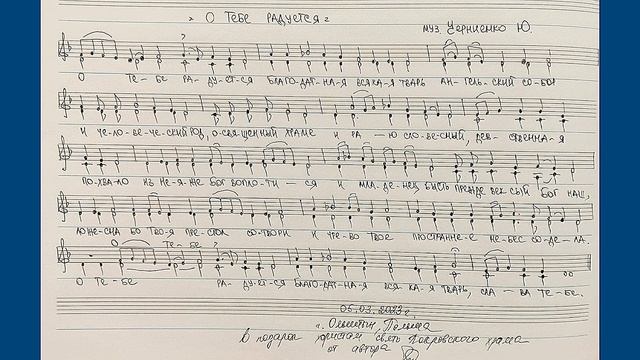 "О Тебе радуется"
муз. Черниенко Ю.
О Те-бе ра-ду-ет-ся Бла-го-дат-на-я вся-ка-я тварь ан-гель-ский со-бор
и че-ло-ве-че-ский род, о-свя-щен-ный хра-ме и ра-ю сло-ве-сный, дев-ствен-на-я
по-хва-ло из не-я-же Бог во-пло-ти-ся и мла-де-нец бысть прежде век сый Бог наш,
ло-же-сна бо тво-я пре-стол со-тво-ри и чре-во твое про-стран-не-е не-бес со-де-ла.
О Те-бе
О Те-бе ра-ду-ет-ся Бла-го-дат-на-я вся-ка-я тварь, сла-ва те-бе.
05.03.2023 г.
г. Ольштын, Польша
В подарок свято Покровского храма
от автора